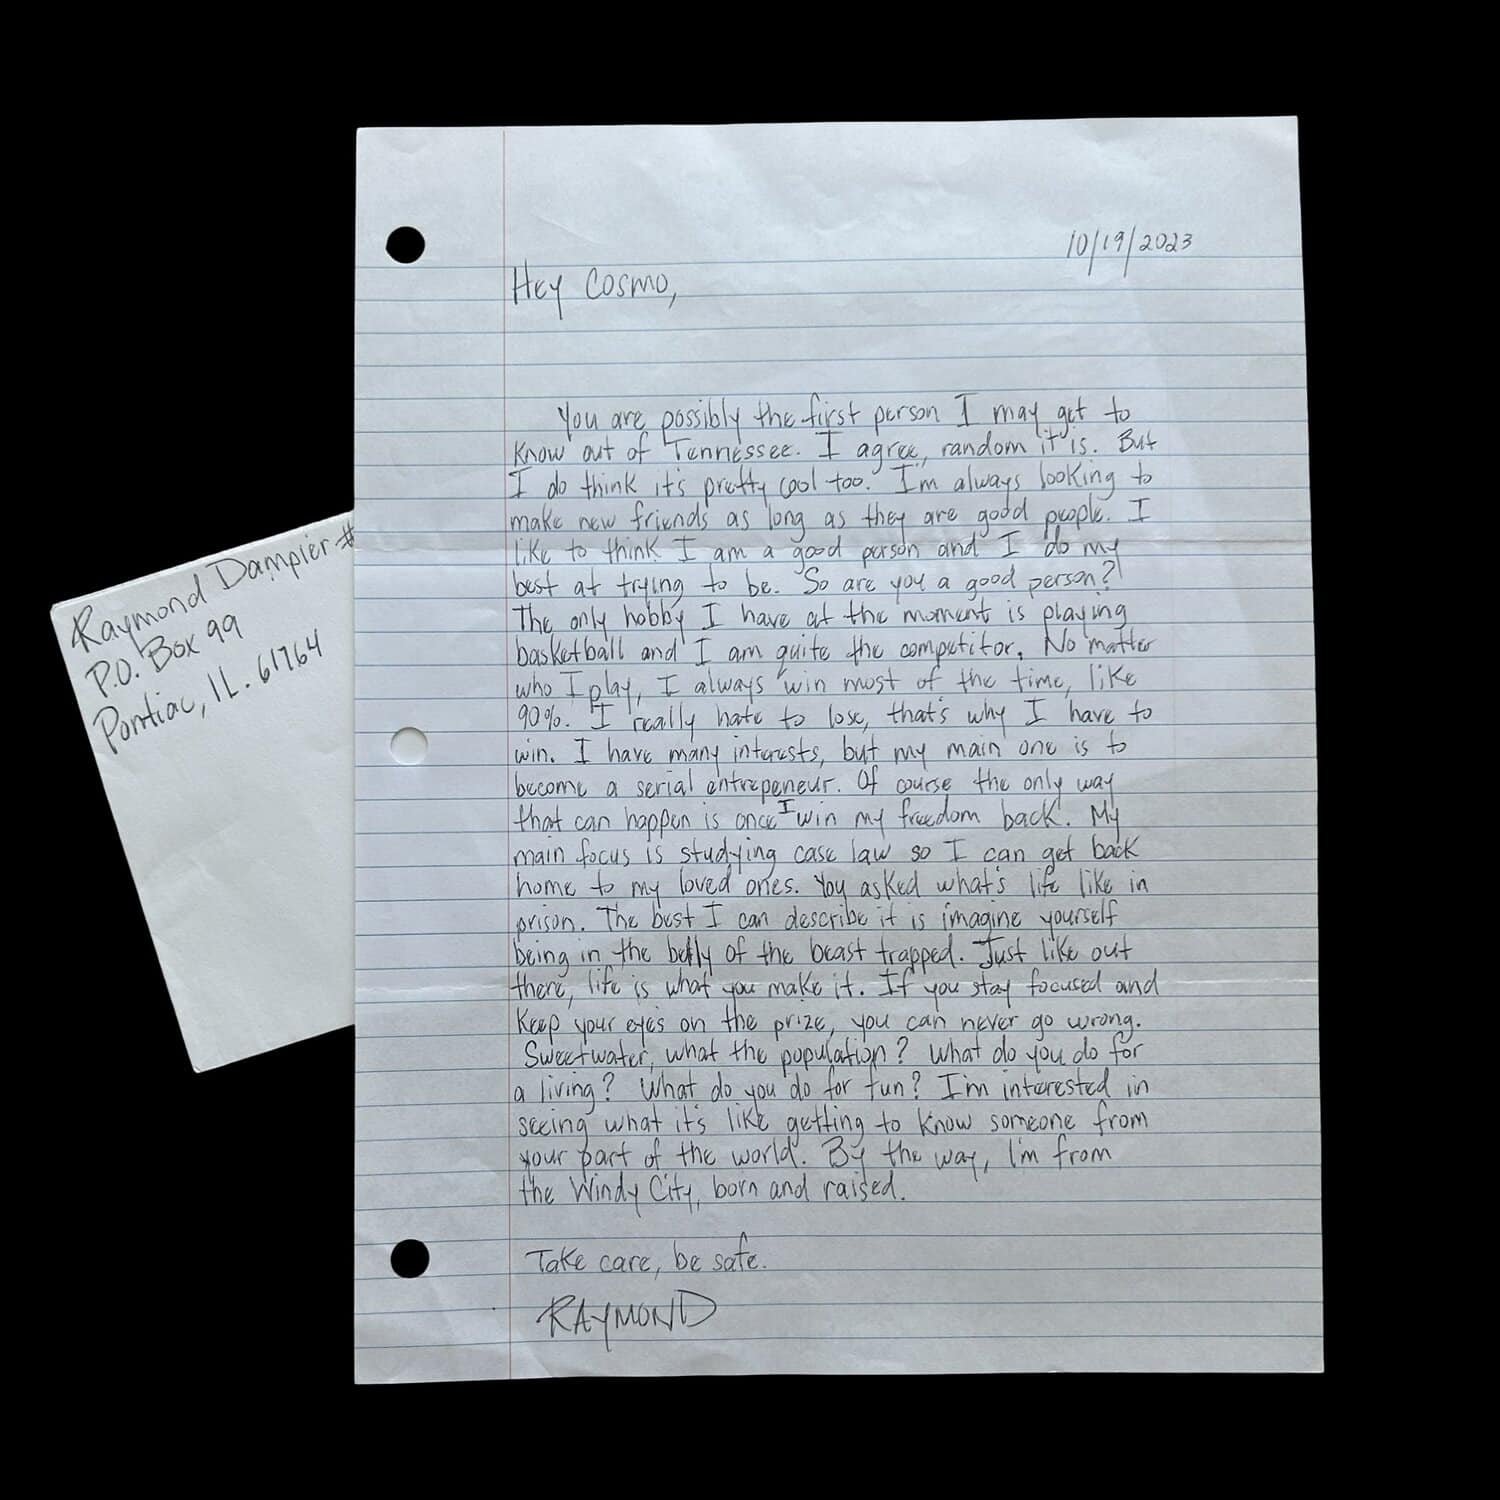 Raymond Dampier #
P.O. Box 99
Pontiac, IL. 61764
10/19/2023
Hey Cosmo,
You are possibly the first person I may get to
know out of Tennessee. I agree, random it is. But
I do think it's pretty cool too. I'm always looking to
make new friends as long as they are good people. I
like to think I am a good person and I do my
best at trying to be. So are you a good person?
The only hobby I have at the moment is playing
basketball and I am quite the competitor. No matter
who I play, I always win most of the time, like
90%. I really hate to lose, that's why I have to
win. I have many interests, but my main one is to
become a serial entrepeneur. Of course the only way
that can happen is once I win my freedom back. My
main focus is studying case law so I can get back
home to my loved ones. You asked what's life like in
prison. The best I can describe it is imagine yourself
being in the belly of the beast trapped. Just like out
there, life is what you make it. If you stay focused and
keep your eye's on the prize, you can never go wrong.
Sweetwater, what the population? What do you do for
a living? What do you do for fun? I'm interested in
seeing what it's like getting to know someone from
your part of the world. By the way, I'm from
the Windy City, born and raised.
Take care, be safe.
RAYMOND